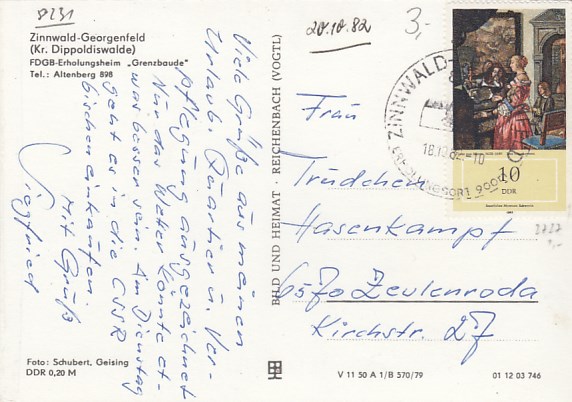 8231
20.10.82
3,-
Zinnwald-Georgenfeld
(Kr. Dippoldiswalde)
FDGB-Erholungsheim „Grenzbaude"
Tel.: Altenberg 898
Viele Grüße aus meinen
Urlaub. Quartier u. Ver-
pflegung ausgezeichnet
Nur das Wetter könnte et-
was besser sein. Am Dienstag
geht es in die CSSR
bischen einkaufen.
Mit Gruß
Siegfried
Foto: Schubert, Geising
DDR 0,20 M
BILD UND HEIMAT · REICHENBACH (VOGTL)
ZINNWALD-
18.10.82-10
10
DDR
Frau
Trudchen
Hasenkampf
6570 Zeulenroda
Kirchstr. 27
V 11 50 A 1/B 570/79
01 12 03 746